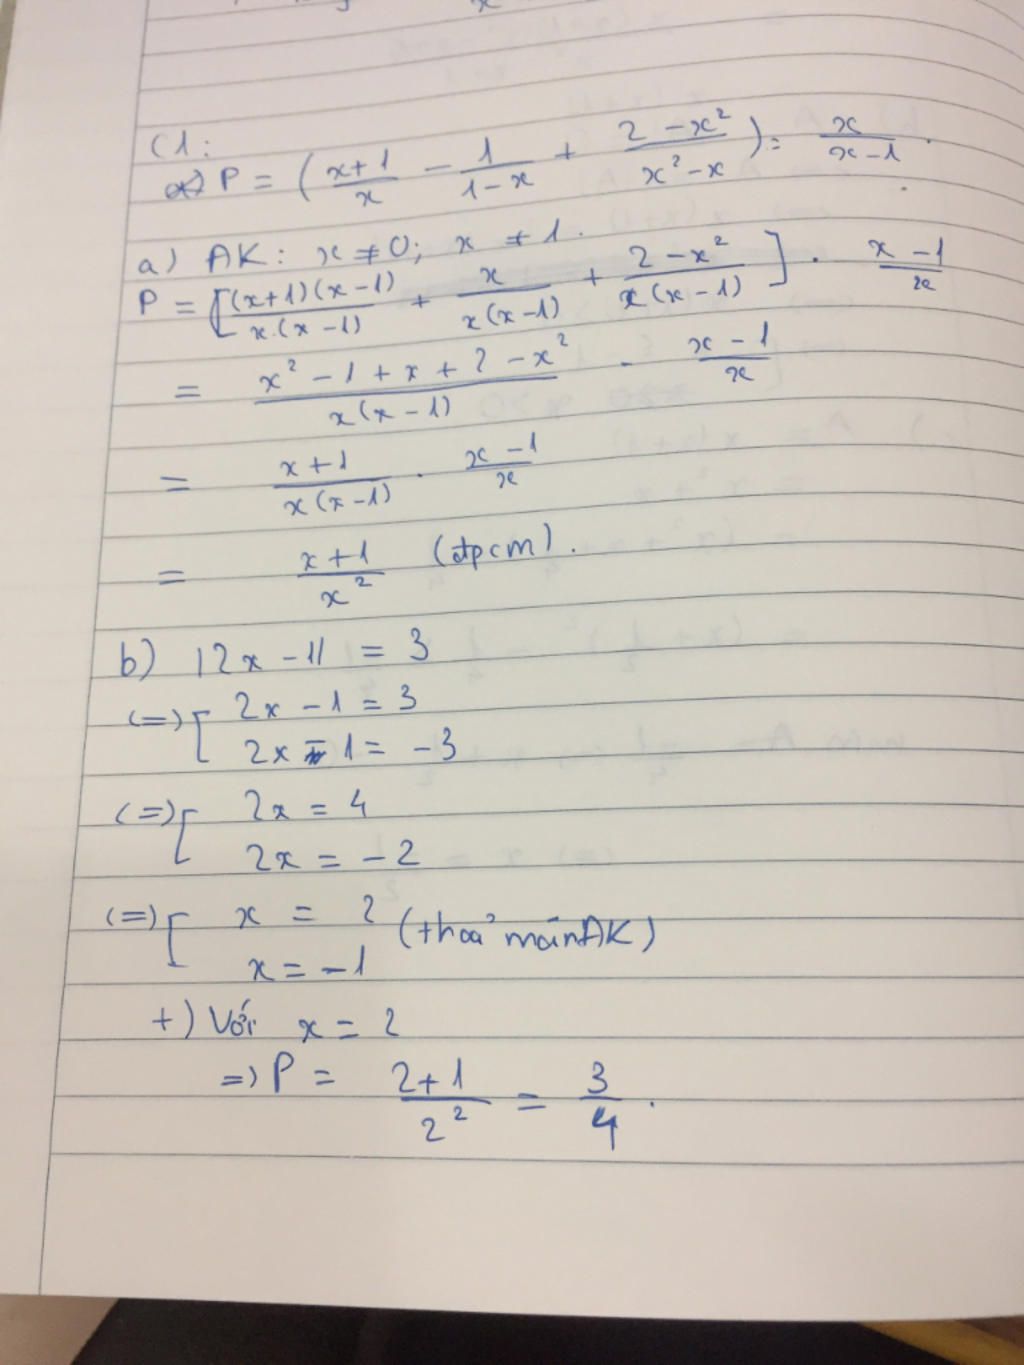 C1:
a) P = (x+1/x - 1/1-x + 2-x²/x²-x) : x/x-1.
a) ĐK: x ≠ 0; x ≠ 1.
P = [(x+1)(x-1)/x.(x-1) + x/x(x-1) + 2-x²/x(x-1)] . x-1/x
= x²-1+x+2-x²/x(x-1) . x-1/x
= x+1/x(x-1) . x-1/x
= x+1/x² (đpcm).
b) |2x-1| = 3
(=) [ 2x-1 = 3
2x-1 = -3
(=) [ 2x = 4
2x = -2
(=) [ x = 2 (thoả mãn ĐK)
x = -1
+) Với x = 2
=> P = 2+1/2² = 3/4.